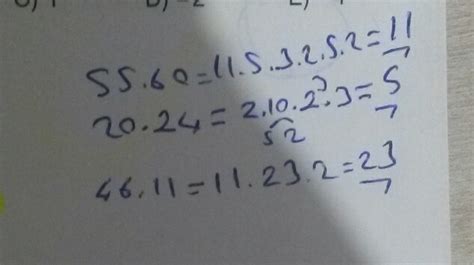 55.60=11.5.3.2.5.2=11
20.24=2.10.2³.3=5
5 2
46.11=11.23.2=23